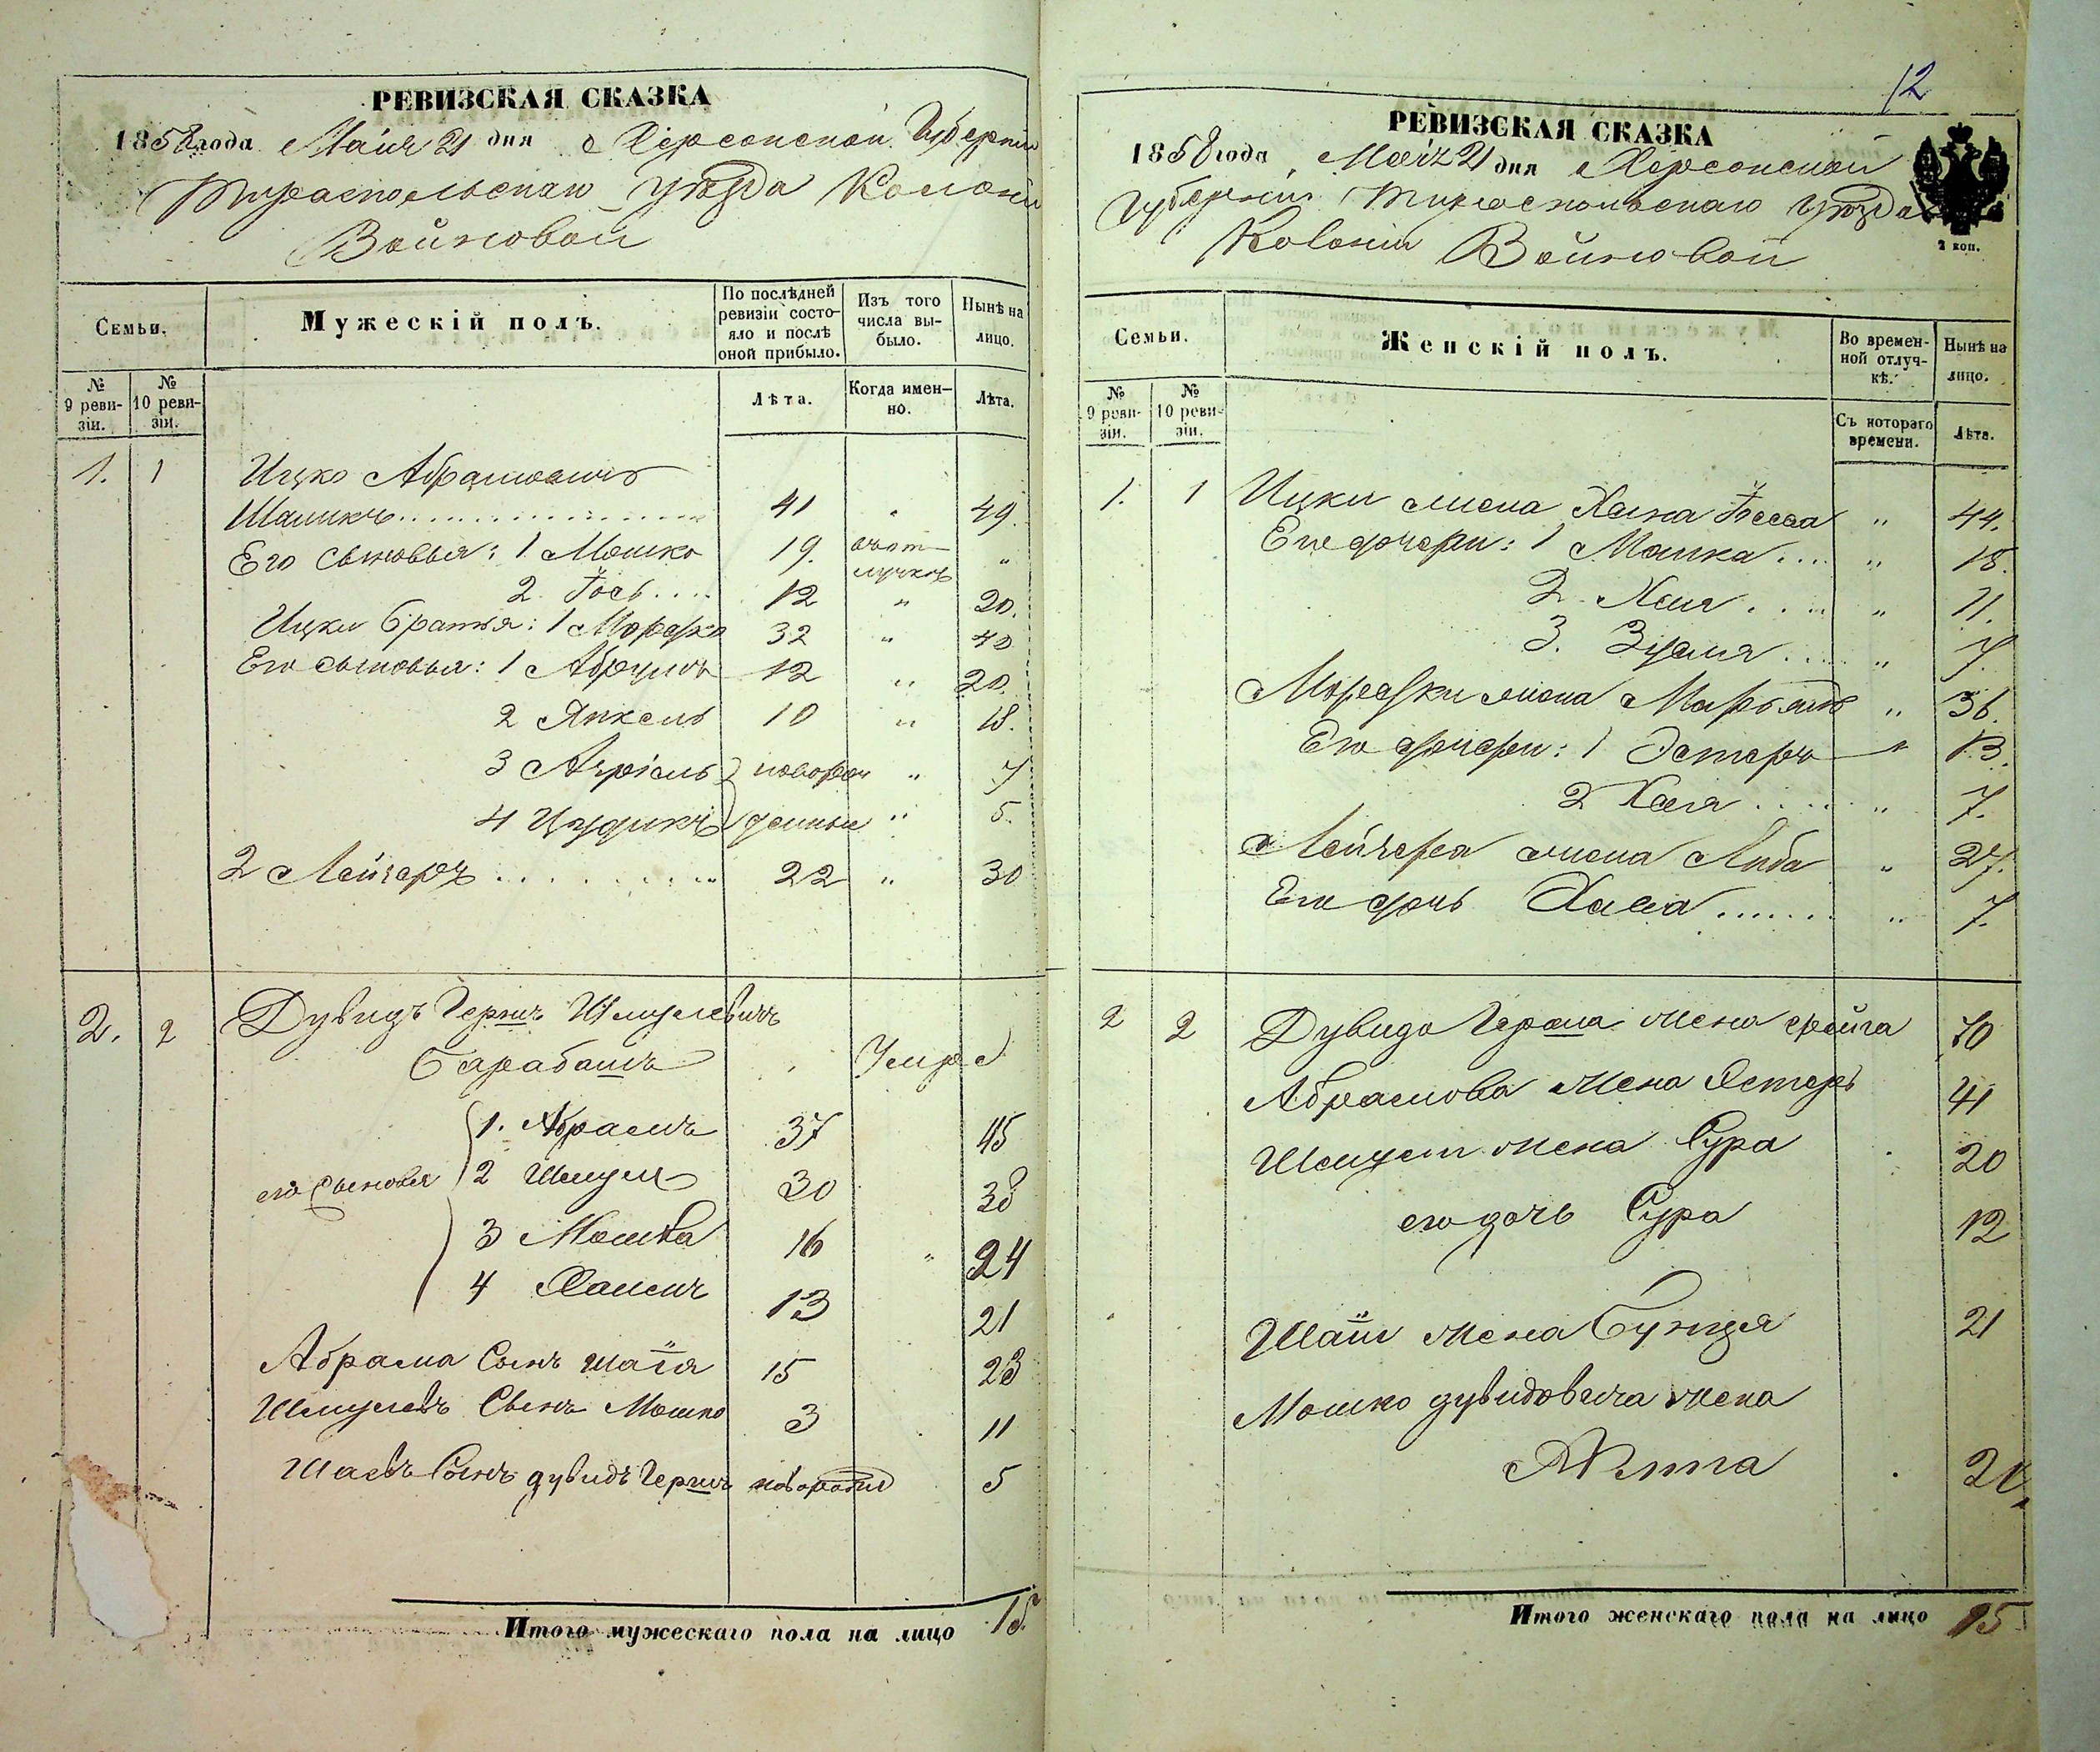 РЕВИЗСКАЯ СКАЗКА
1858 года Маiя 21 дня Херсонской Губернiи
Тираспольскаго уѣзда Колонiи
Войновой
Семьи.
Мужескiй полъ.
По послѣдней ревизiи состо-
яло и послѣ
оной прибыло.
Изъ того
числа вы-
было.
Нынѣ на
лицо.
№
9 реви-
зiи.
№
10 реви-
зiи.
Лѣта.
Когда имен-
но.
Лѣта.
1. 1 Ицко Абрамовичъ
41 " 49.
Его сыновья: 1 Мошко 19. "
2 12 " 20.
Ицки братья: 1 Мордко 32 " 40
Его сыновья: 1 12 " 20.
2 Янкель 10 " 18.
3 новорож " 7
4 денные " 5.
2 Лейзеръ 22 " 30
2. 2 Дувидъ Гершъ Шмулевичъ
Барабашъ Умре
1. Абрамъ 37 45
его сыновья 2 Шмуля 30 38
3 Мошка 16 " 24
4 Хаимъ 13 21
Абрама Сынъ шаiя 15 23
Шмулевъ Сынъ Мошко 3 11
Шаевъ Сынъ дувидъ Гершъ 5
Итого мужескаго пола на лицо
12
РЕВИЗСКАЯ СКАЗКА
1858 года Маiя 21 дня Херсонской
Губернiи Тираспольскаго уѣзда
Колонiи Войновой
2 коп.
Семьи.
Женскiй полъ.
Во времен-
ной отлуч-
кѣ.
Нынѣ на
лицо.
№
9 реви-
зiи.
№
10 реви-
зiи.
Съ котораго
времени.
Лѣта.
1. 1 Ицки жена Хана " 44.
Его дочери: 1 Малка " 18.
2. Хая " 11.
3. " 7.
Мордки жена " 36.
Его дочери: 1 Эстеръ " 13.
2 Хая " 7.
Лейзера жена Либа " 27.
Его дочь Хася " 7.
2 2 Дувида Герша жена фейга 70
Абрамова жена Эстеръ 41
жена Сура 20
его дочь Сура 12
Шаiи жена Бунця 21
Мошко дувидовича жена
21.
Итого женскаго пола на лицо 15